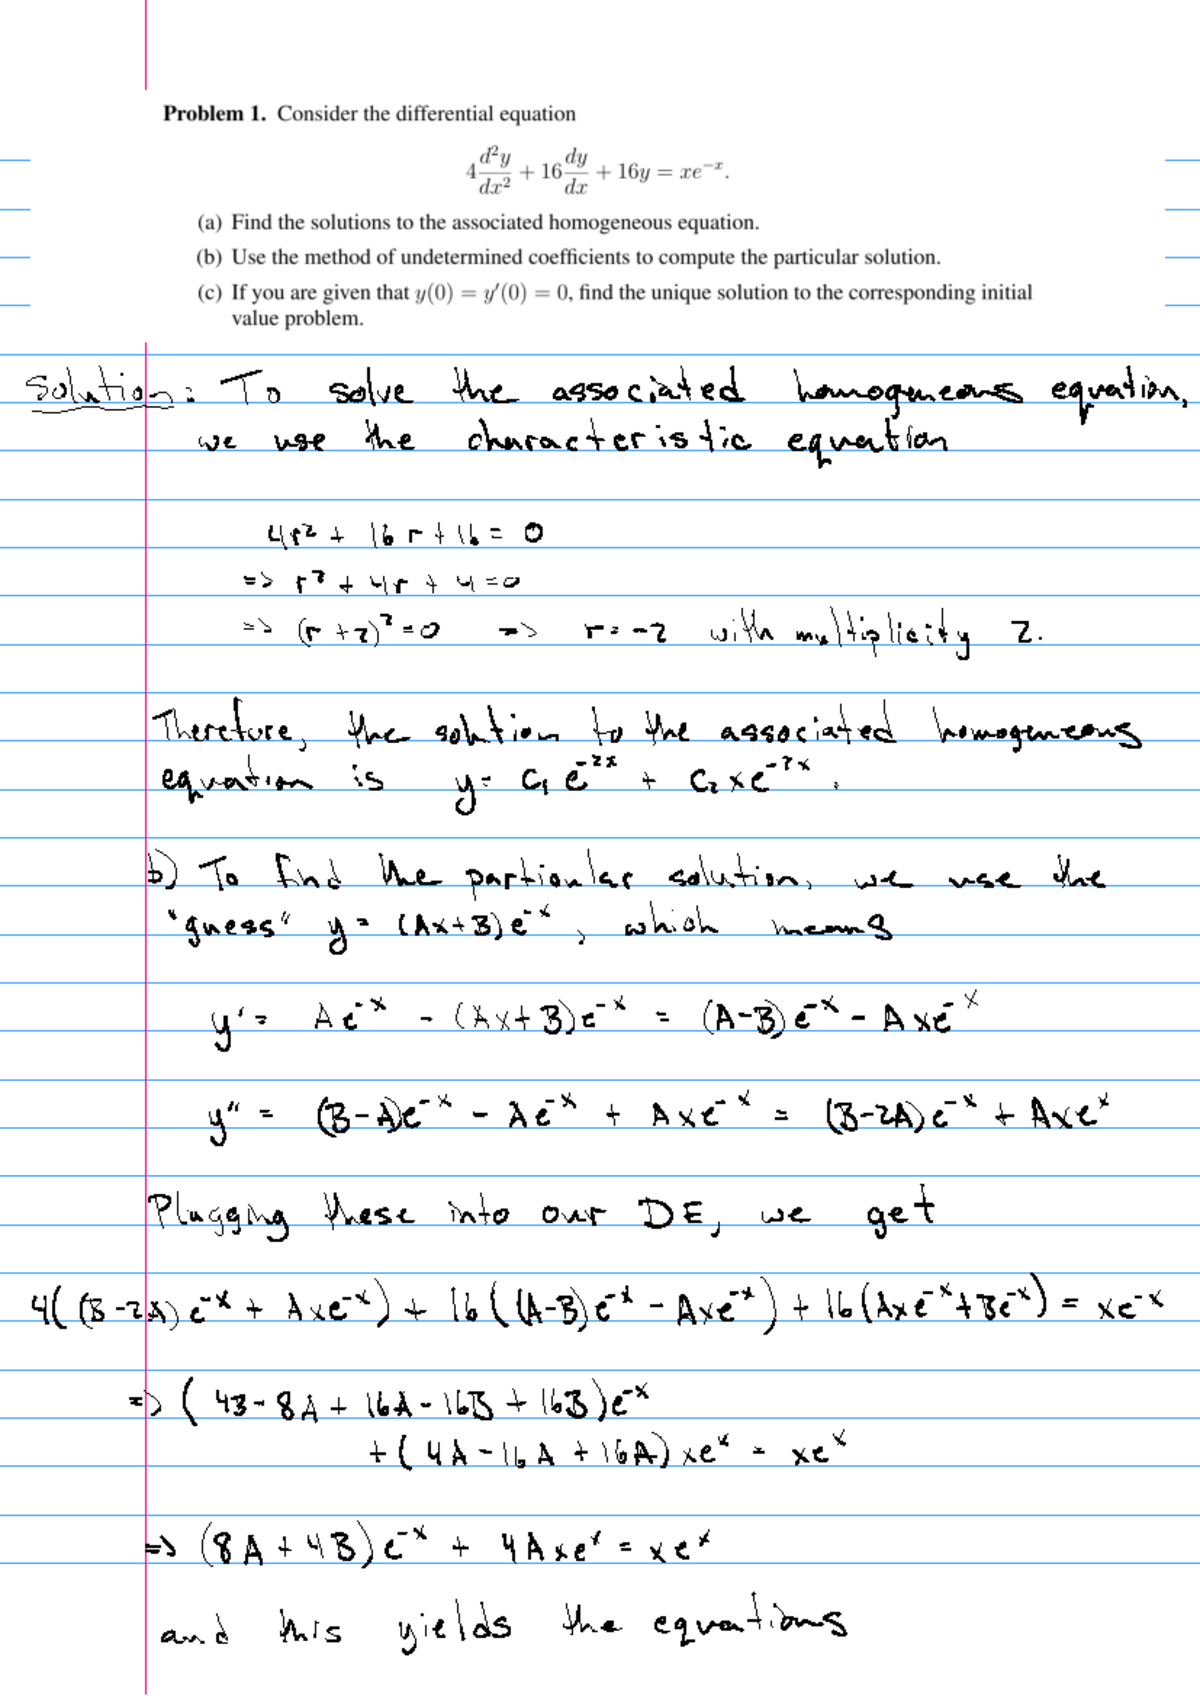 Problem 1. Consider the differential equation
4 d²y/dx² + 16 dy/dx + 16y = xe⁻ˣ.
(a) Find the solutions to the associated homogeneous equation.
(b) Use the method of undetermined coefficients to compute the particular solution.
(c) If you are given that y(0) = y′(0) = 0, find the unique solution to the corresponding initial
value problem.
Solution: To solve the associated homogeneous equation,
we use the characteristic equation
4r² + 16r + 16 = 0
=> r² + 4r + 4 = 0
=> (r + 2)² = 0 => r = -2 with multiplicity 2.
Therefore, the solution to the associated homogeneous
equation is y = C₁ e⁻²ˣ + C₂ xe⁻²ˣ.
b) To find the particular solution, we use the
"guess" y = (Ax+B)e⁻ˣ, which means
y' = Ae⁻ˣ - (Ax+B)e⁻ˣ = (A-B)e⁻ˣ - Axe⁻ˣ
y" = (B-A)e⁻ˣ - Ae⁻ˣ + Axe⁻ˣ = (B-2A)e⁻ˣ + Axeˣ
Plugging these into our DE, we get
4((B-2A)e⁻ˣ + Axe⁻ˣ) + 16((A-B)e⁻ˣ - Axe⁻ˣ) + 16(Axe⁻ˣ+Be⁻ˣ) = xe⁻ˣ
=> (4B - 8A + 16A - 16B + 16B)e⁻ˣ
+ (4A - 16A + 16A) xeˣ = xeˣ
=> (8A + 4B)e⁻ˣ + 4Axeˣ = xeˣ
and this yields the equations